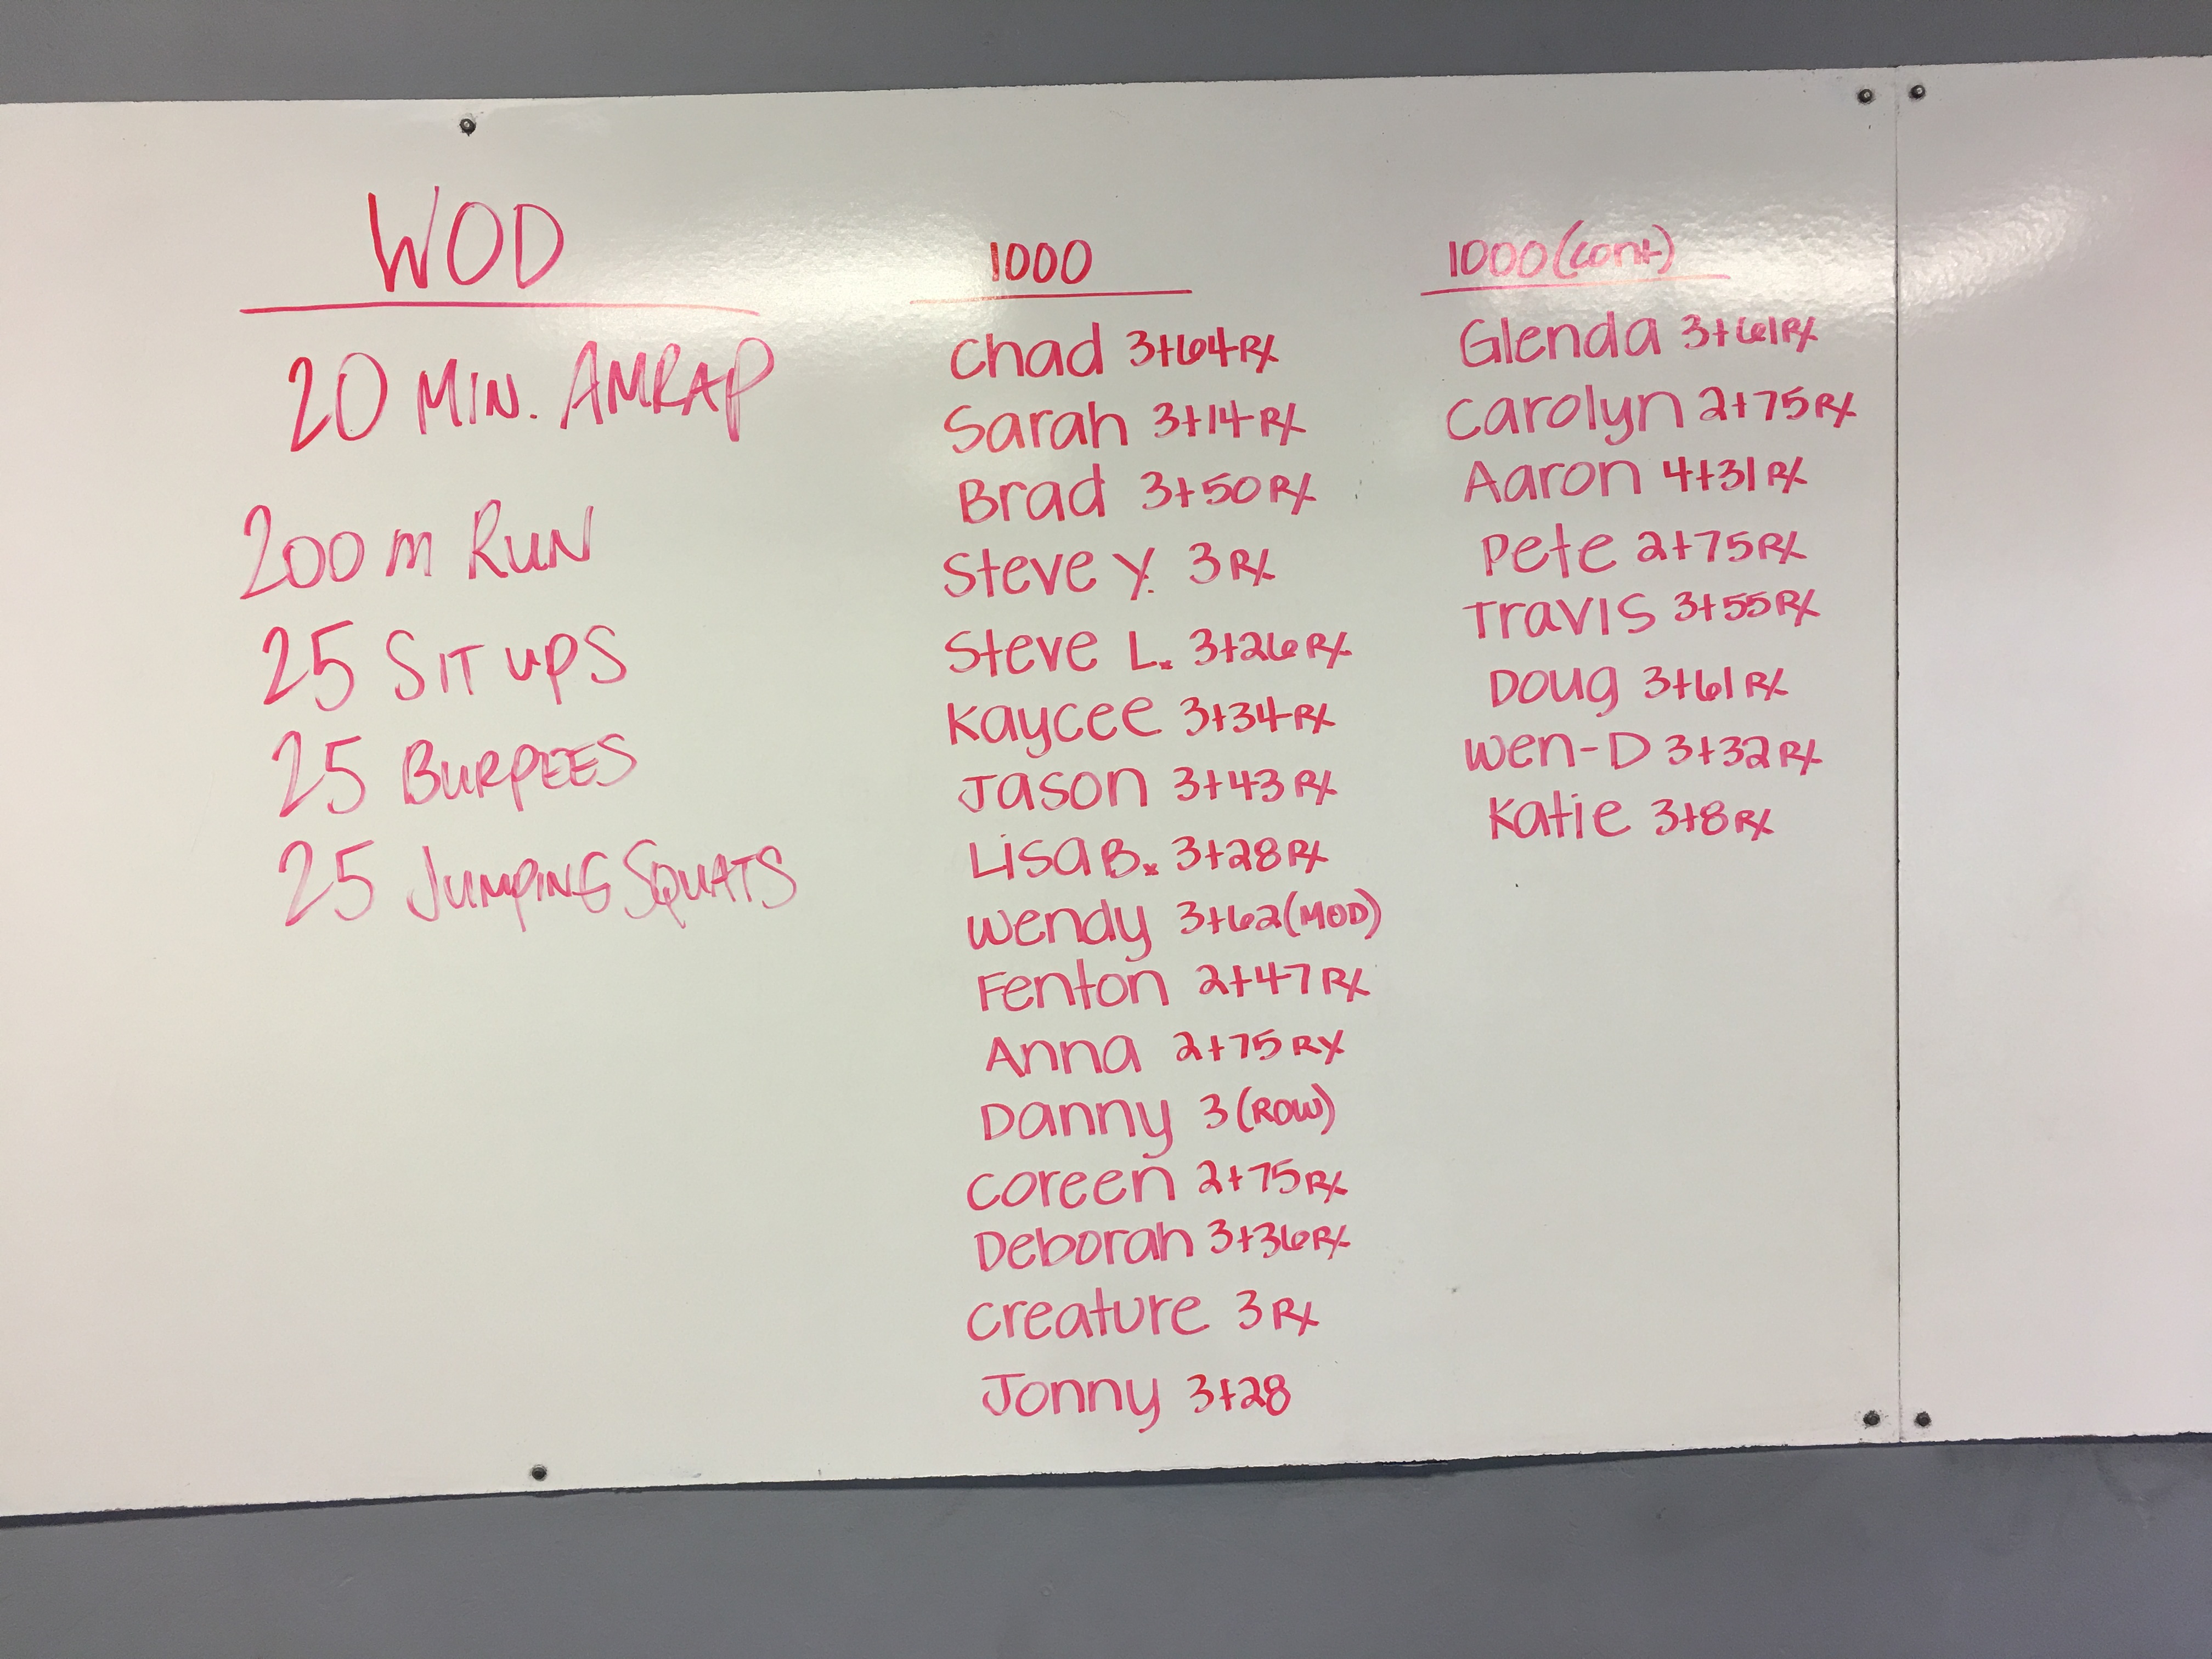 WOD
20 MIN. AMRAP
200 m RUN
25 SIT UPS
25 BURPEES
25 JUMPING SQUATS
1000
Chad 3+64 Rx
Sarah 3+14 Rx
Brad 3+50 Rx
Steve Y. 3 Rx
Steve L. 3+26 Rx
Kaycee 3+34 Rx
Jason 3+43 Rx
Lisa B. 3+28 Rx
Wendy 3+62 (MOD)
Fenton 2+47 Rx
Anna 2+75 Rx
Danny 3 (ROW)
Coreen 2+75 Rx
Deborah 3+36 Rx
Creature 3 Rx
Jonny 3+28
1000 (cont)
Glenda 3+61 Rx
Carolyn 2+75 Rx
Aaron 4+31 Rx
Pete 2+75 Rx
Travis 3+55 Rx
Doug 3+61 Rx
Wen-D 3+32 Rx
Katie 3+8 Rx